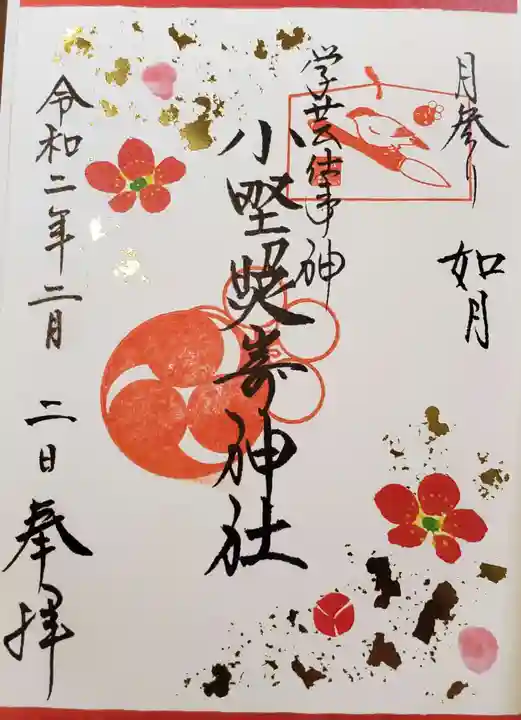 月参り
如月
学芸仕事神
小野照崎神社
令和二年二月 二日
奉拝